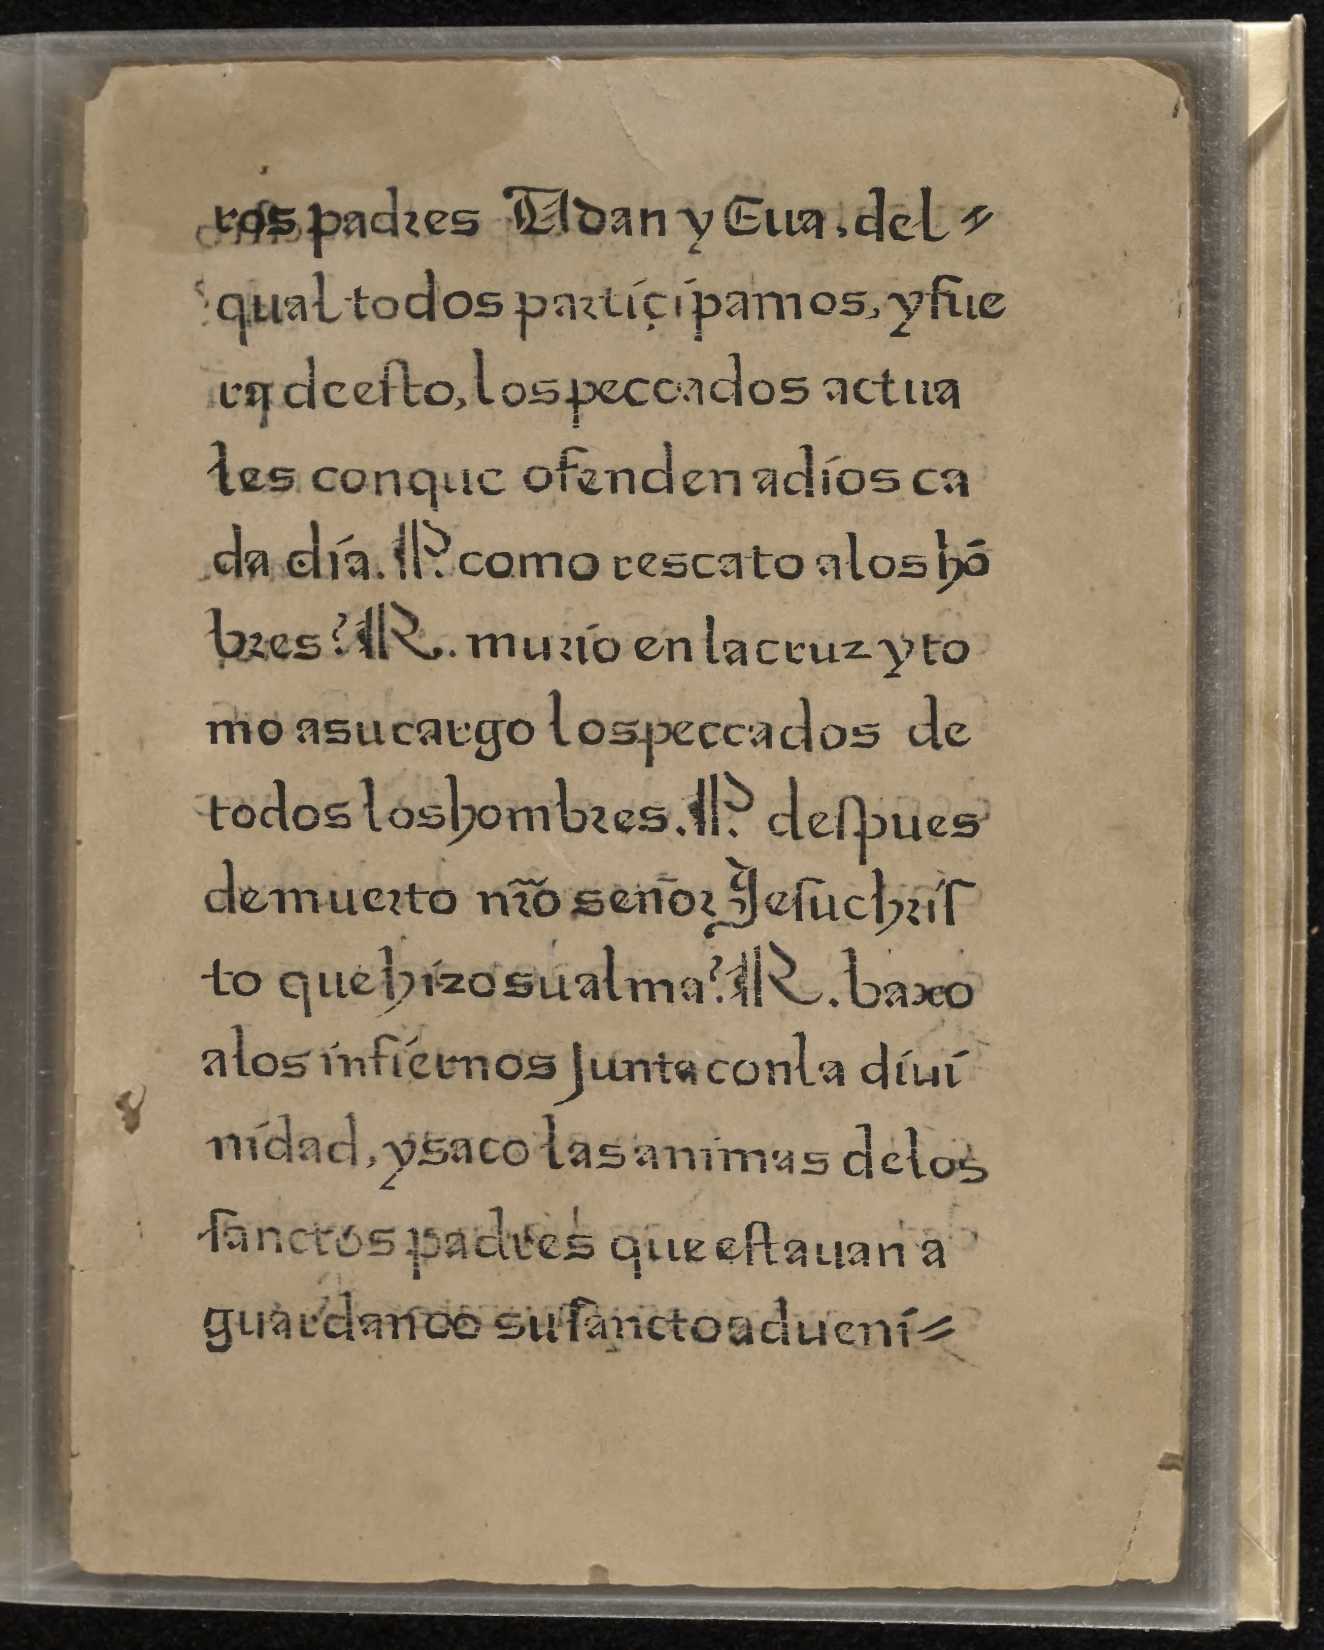 ros padres Adan y Eua, del
qual todos partiçipamos, y fue
ra ̄q desto, los peccados actua
les con que ofenden a dios ca
da dia. P. como rescato a los hõ
bres? R. murio en la cruz y to
mo a su cargo los peccados de
todos los hombres. P. despues
de muerto nr̃o señor Jesuchris
to que hizo su alma? R. baxo
a los infiernos junta con la diui
nidad, y saco las animas de los
sanctos padres que estauan a
guardando su sancto adueni